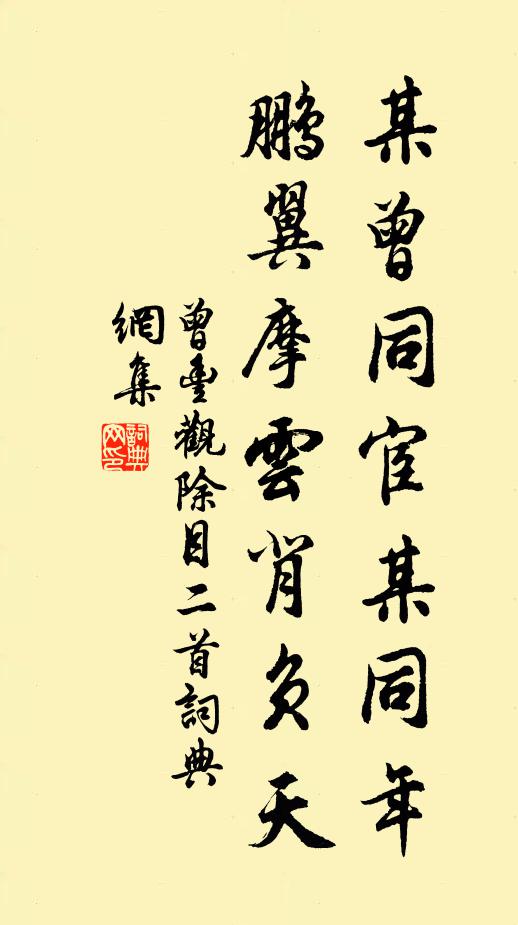 某曾同宦某同年
鹏翼摩雲背负天
曾豊觀除目二首詞典
網集
詞典网印